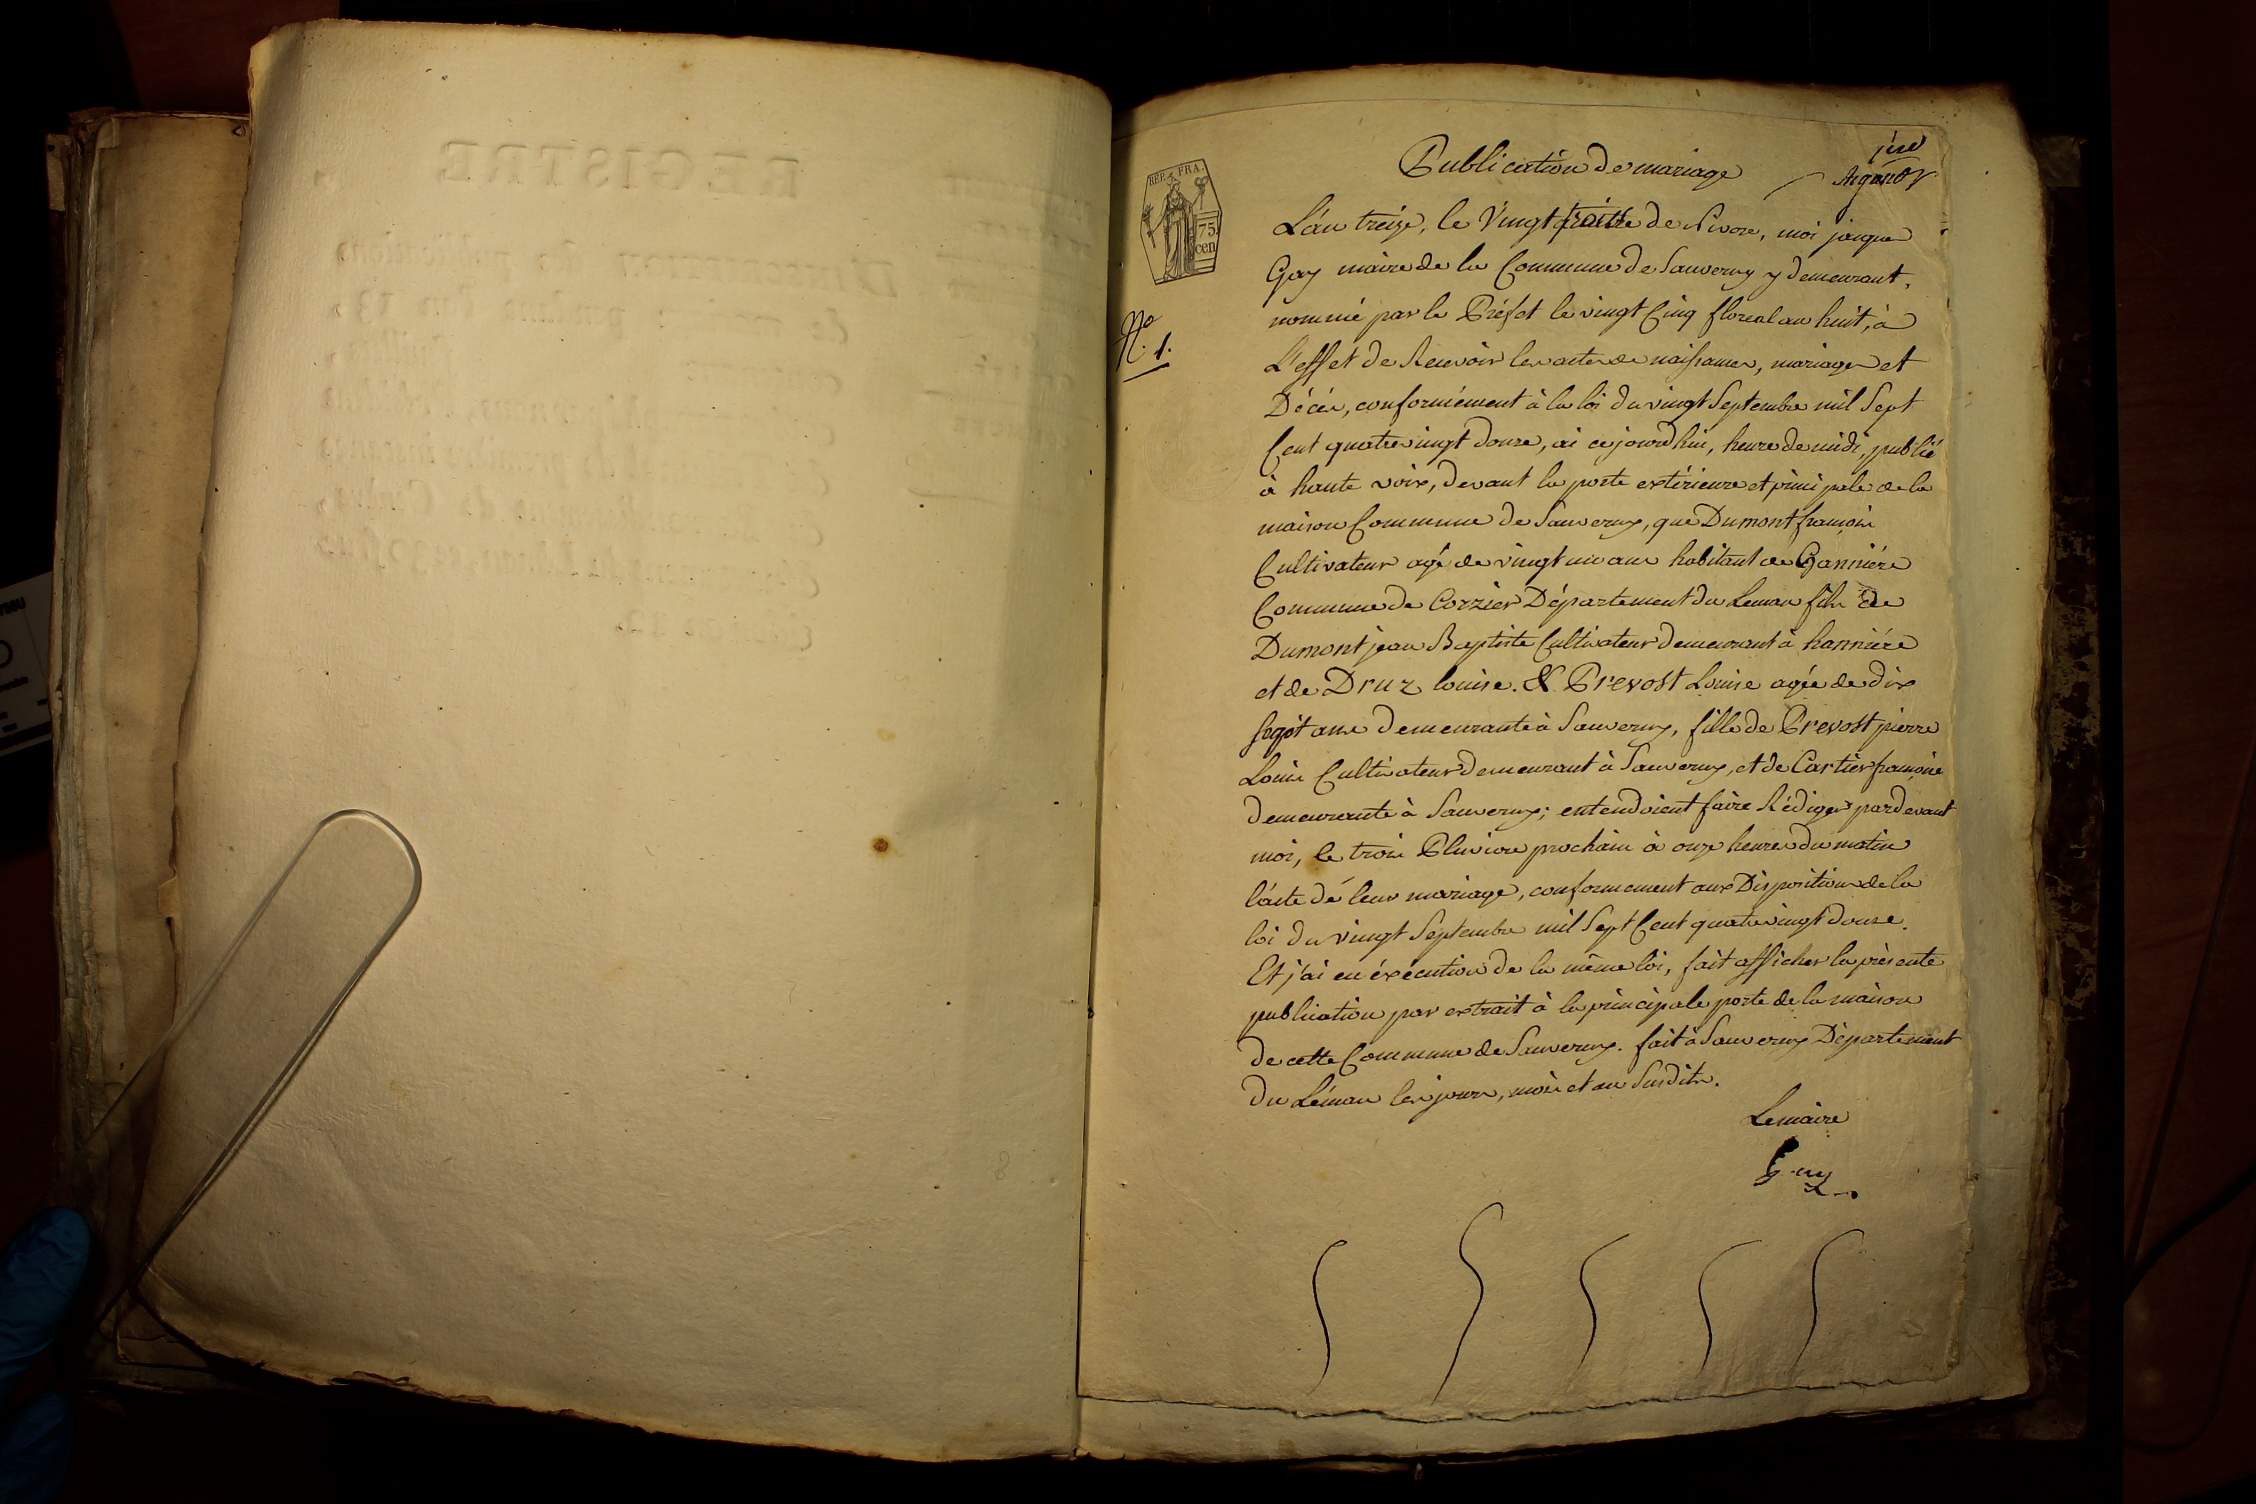 REGISTRE
REP. FRA.
75
cen
Publication de mariage
N.o 1.
L'an treize, le Vingt de Nivose, moi jacques
Gay maire de la Commune de Sauverny y demeurant,
nommé par le Préfet le vingt Cinq floreal an huit, à
L'effet de Recevoir les actes de naissances, mariages et
Décès, conformément à la loi du vingt Septembre mil Sept
Cent quatrevingt Douze, ai cejourd'hui, heure de midi, publié
à haute voix, devant la porte extérieure et principale de la
maison Commune de Sauverny, que Dumont françois
Cultivateur agé de vingt un ans habitant de
Commune de Corzier Département du Leman fils de
Dumont jean Baptiste Cultivateur demeurant à
et de Druz louise. & Prevost Louise agée de dix
Sept ans demeurante à Sauverny, fille de Prevost pierre
Louis Cultivateur demeurant à Sauverny, et de Cartier françoise
demeurante à Sauverny; entendoient faire Rédiger pardevant
moi, le trois Pluviose prochain à onze heures du matin
l'acte de leur mariage, conformement aux Dispositions de la
loi du vingt Septembre mil Sept Cent quatrevingt douze.
Et j'ai en éxécution de la même loi, fait afficher la présente
publication par extrait à la principale porte de la maison
de cette Commune de Sauverny. fait à Sauverny Département
du Léman les jours, mois et an Susdits.
Lemaire
Gay